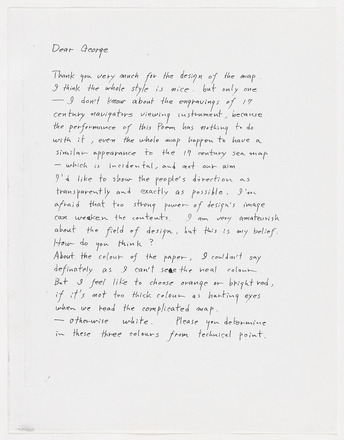 Dear George
Thank you very much for the design of the map.
I think the whole style is nice. but only one
— I don't know about the engravings of 17
century navigators viewing instrument, because
the performance of this Poem has nothing to do
with it, even the whole map happen to have a
similar appearance to the 17 century sea map
— which is incidental, and not our aim
I'd like to show the people's direction as
transparently and exactly as possible. I'm
afraid that too strong power of design's image
can weaken the contents. I am very amateurish
about the field of design, but this is my belief.
How do you think?
About the colour of the paper, I couldn't say
definately as I can't see the real colour
But I feel like to choose orange or bright red,
if it's not too thick colour as hurting eyes
when we read the complicated map.
— otherwise white. Please you determine
in these three colours from technical point.